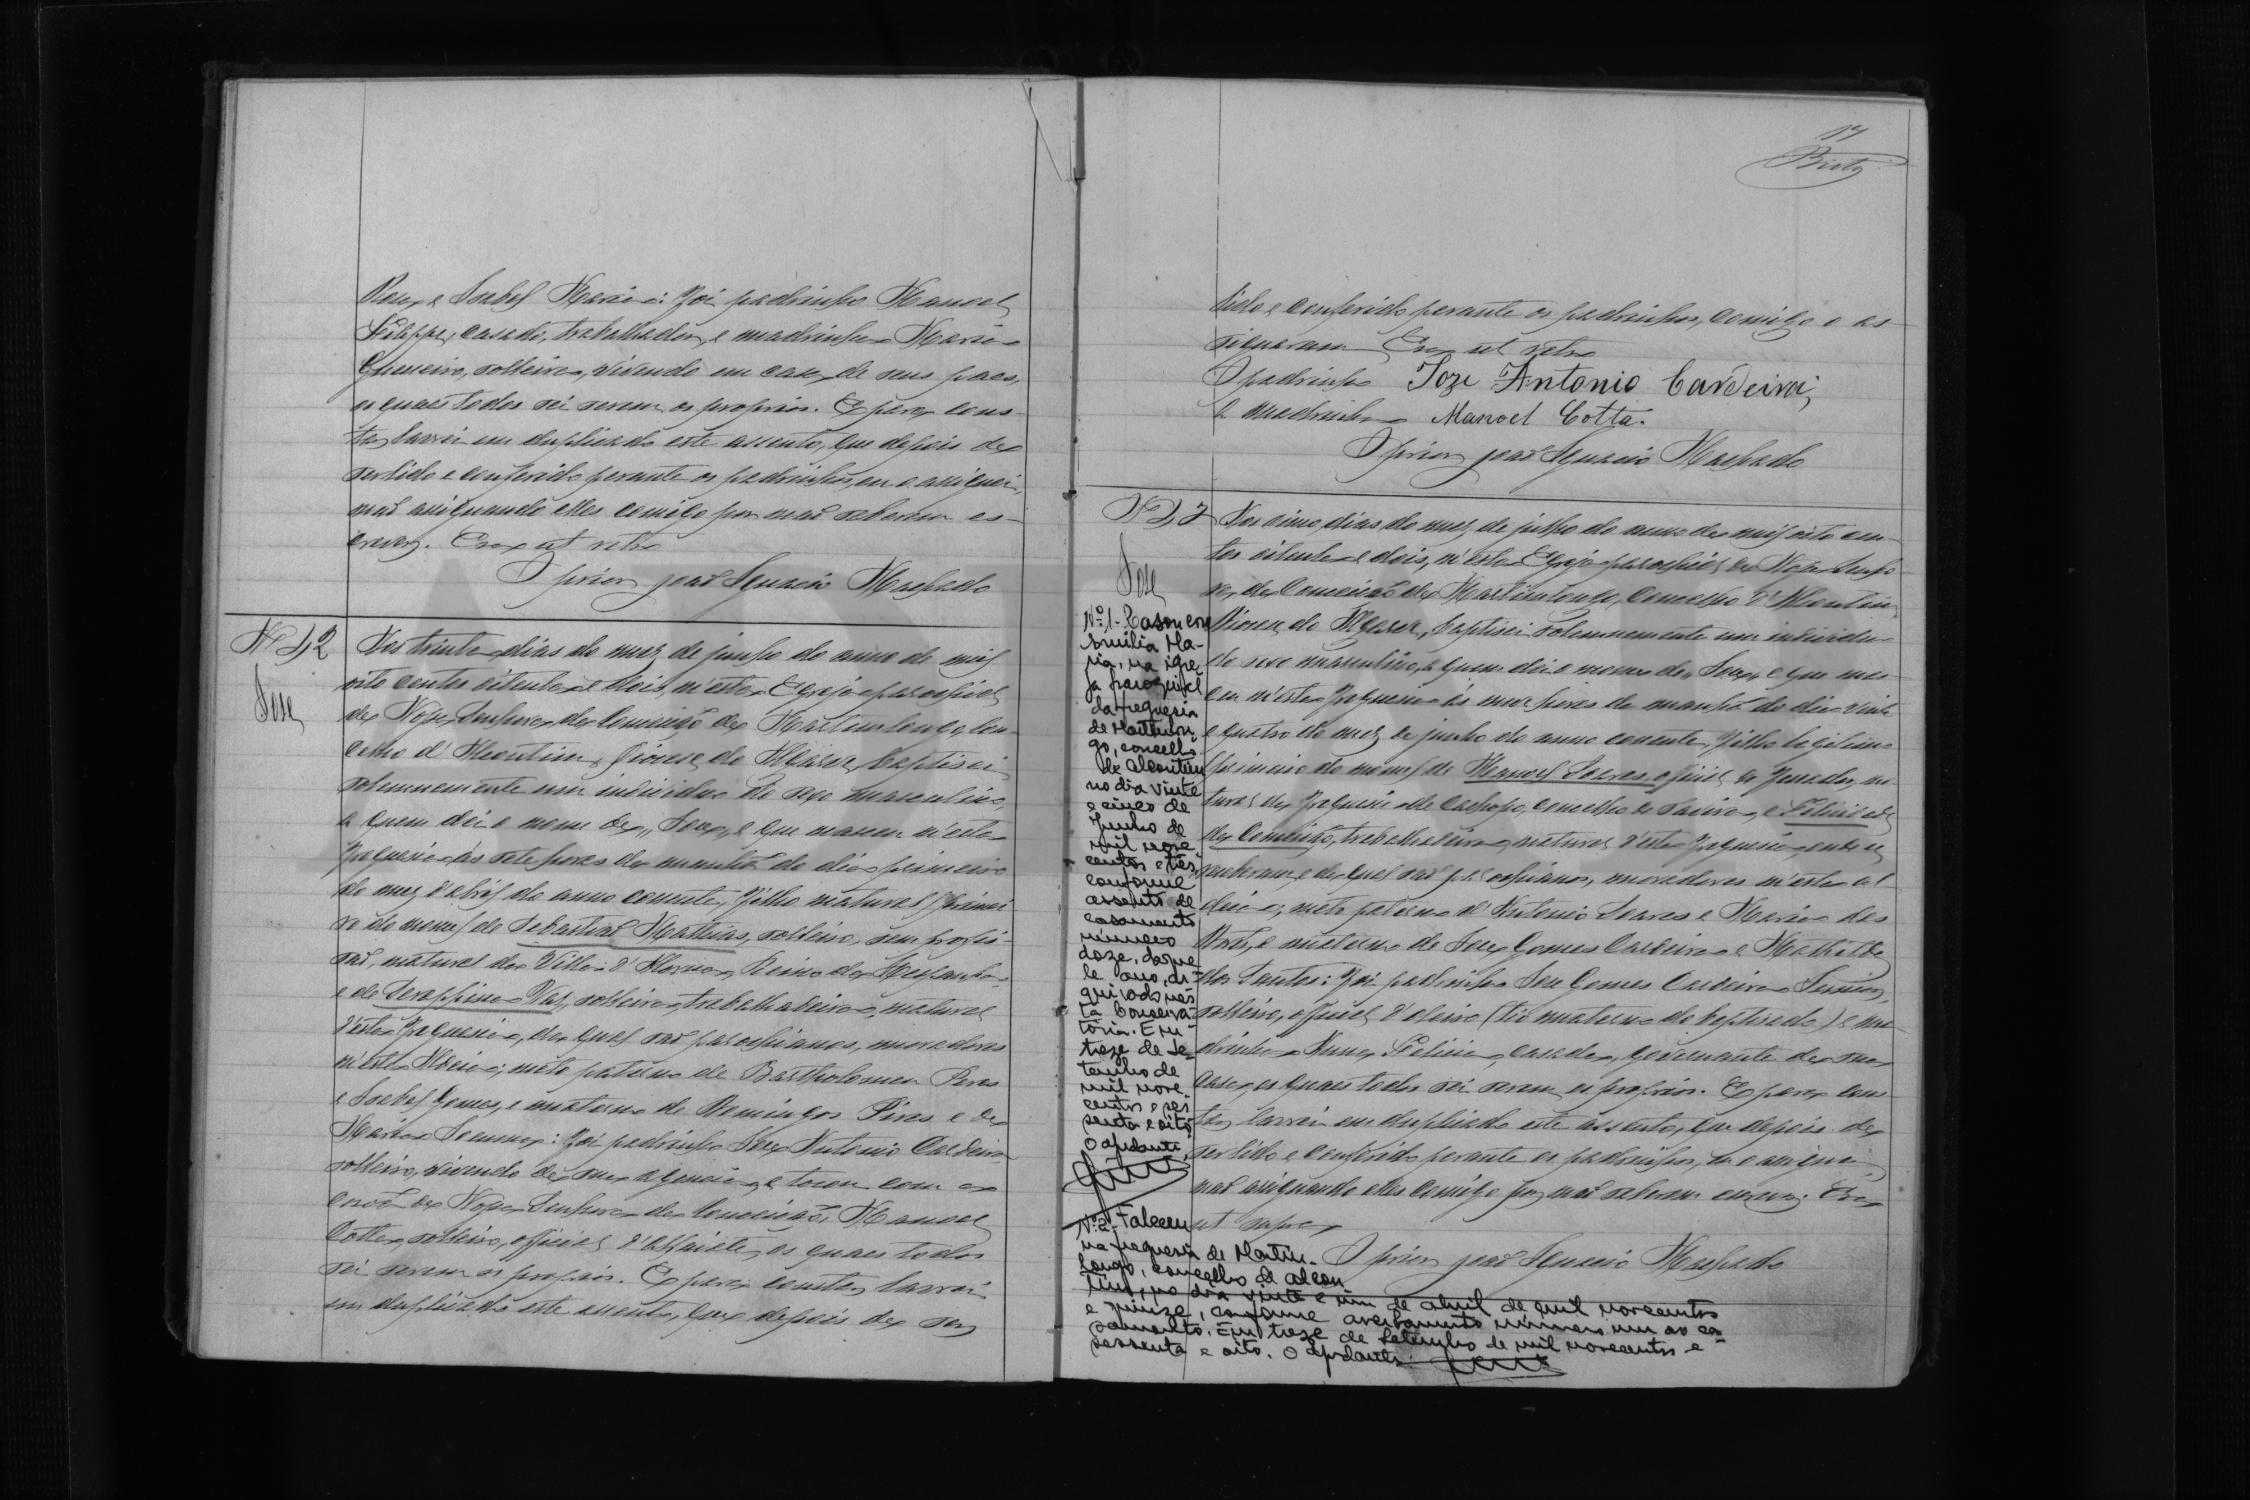 Rosa e Isabel Maria: Foi padrinho Manoel
Filippe, casado, trabalhador, e madrinha Maria
Guerreiro, solteira, vivendo em casa de seus paes,
os quaes todos sei serem os proprios. E para cons-
tar lavrei em duplicado este assento, que depois de
ser lido e conferido perante os padrinhos, eu o assignei,
não assignando elles comigo por não saberem es-
crever. Era ut retro
O prior João Ignacio Machado
Nº 42
José
Aos trinta dias do mez de junho do anno de mil
oito centos oitenta e dois, n'esta Egreja parochial
de Nossa Senhora da Conceição de Martimlongo, con-
celho d'Alcoutim, Diocese do Algarve, baptisei
solemnemente um individuo do sexo masculino,
a quem dei o nome de "José" e que nasceu n'esta
freguesia ás sete horas da manhã do dia primeiro
do mez d'abril do anno corrente, filho natural, primei-
ro do nome, de Sebastião Mathias, solteiro, sem profis-
são, natural da Villa d' Reino de Hespanha
e de Seraphina Vaz, solteira, trabalhadeira, natural
d'esta freguesia, da qual são parochianos, moradores
n'esta Aldeia; neto paterno de Bartholomeu Peres
e Isabel Gomes, e materno de Domingos Pires e de
Maria Joanna: Foi padrinho José Antonio Cardeira
solteiro, vivendo de sua agencia, e tocou com a
coroa de Nossa Senhora da Conceição, Manoel
Cotta, solteiro, official d'alfaiate, os quaes todos
sei serem os proprios. E para constar lavrei
em duplicado este assento, que depois de ser
17
Brito
lido e conferido perante os padrinhos, comigo o as-
signaram. Era ut retro
O padrinho Joze Antonio Cardeira,
A madrinha Manoel Cotta.
O prior João Ignacio Machado
Nº 43
José
Aos cinco dias do mez de julho do anno de mil oito cen-
tos oitenta e dois, n'esta Egreja parochial de Nossa Senho-
ra da Conceição de Martimlongo, Concelho d'Alcoutim,
Diocese do Algarve, baptisei solemnemente um individuo
do sexo masculino, a quem dei o nome de "José" e que nas-
ceu n'esta freguesia ás nove horas da manhã do dia vinte
e quatro do mez de junho do anno corrente, filho legitimo
primeiro do nome, de Manoel Soares, official de ferrador, na-
tural da freguesia de Cachopo, concelho de Tavira, e Felicidade
da Conceição, trabalhadeira, natural d'esta freguesia onde se
receberam e da qual são parochianos, moradores n'esta al-
deia; neto paterno d'Antonio Soares e Maria das
Dores, e materno de José Gomes Cardeira e Mathilde
dos Santos: Foi padrinho José Gomes Cardeira Junior,
solteiro, official d'oleiro (tio materno do baptisado) e ma-
drinha Anna Felicia, casada, governante de sua
casa, os quaes todos sei serem os proprios. E para cons-
tar lavrei em duplicado este assento, que depois de
ser lido e conferido perante os padrinhos, eu o assignei,
não assignando elles comigo por não saberem escrever. Era
ut supra
O prior João Ignacio Machado
Nº 1 - Casou com
Emilia Ma-
ria, na igre-
ja paroquial
da freguesia
de Martinlon-
go, concelho
de Alcoutim
no dia vinte
e cinco de
Junho de
mil nove
centos e três,
conforme
assento de
casamento
número
doze, daque-
le ano, ar-
quivado nes-
ta Conserva-
tória. Em
treze de Se-
tembro de
mil nove-
centos e ses-
senta e oito
O ajudante,
Nº 2 - Faleceu
na freguesia de Martin-
longo, concelho de Alcou-
tim, no dia vinte e um de abril de mil novecentos
e quinze, conforme averbamento número um ao ca-
samento. Em treze de Setembro de mil novecentos e
sessenta e oito. O ajudante,